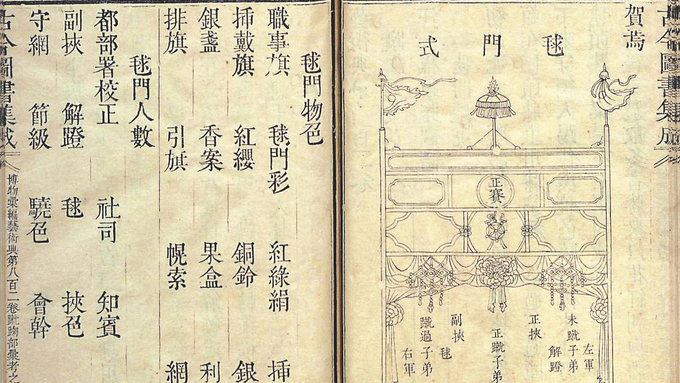 古今圖書集成
賀焉
毬門式
正賽
左軍
未蹴子弟
解蹬
正挾
正蹴子弟
副挾
毬
蹴過子弟
右軍
毬門物色
職事旗 毬門彩 紅綠絹 挿
挿戴旗 紅纓 銅鈴 銀
銀盞 香案 果盒 利
排旗 引旗 幌索 網
毬門人數
都部署校正 社司 知賓
副挾 解蹬 毬 挾色
守網 節級 驍色 會幹
古今圖書集成 博物彙編藝術典第八百二卷蹴踘部彙考之